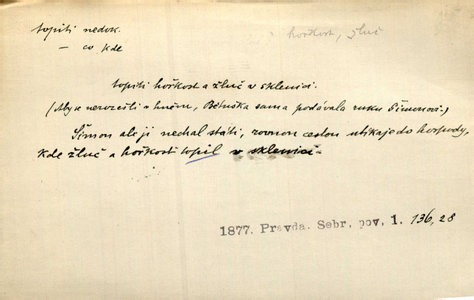 topiti nedok.
hořkost, žluč
— co kde
topiti hořkost a žluč v sklenici.
(Aby se nerozešli v hněvu, Bětuška sama podávala ruku Šimonovi.)
Šimon ale ji nechal státi, rovnou cestou utíkaje do hospody,
kde žluč a hořkost topil v sklenici.
1877. Pravda. Sebr. pov. 1. 136, 28